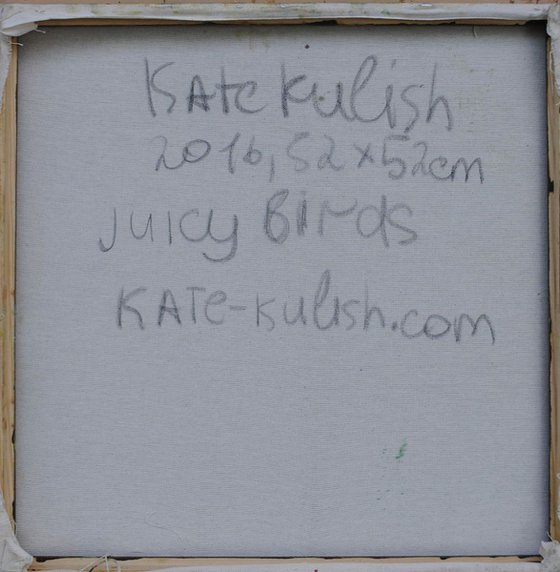 Kate Kulish
2016, 52x52cm
Juicy Birds
KATe-Kulish.com